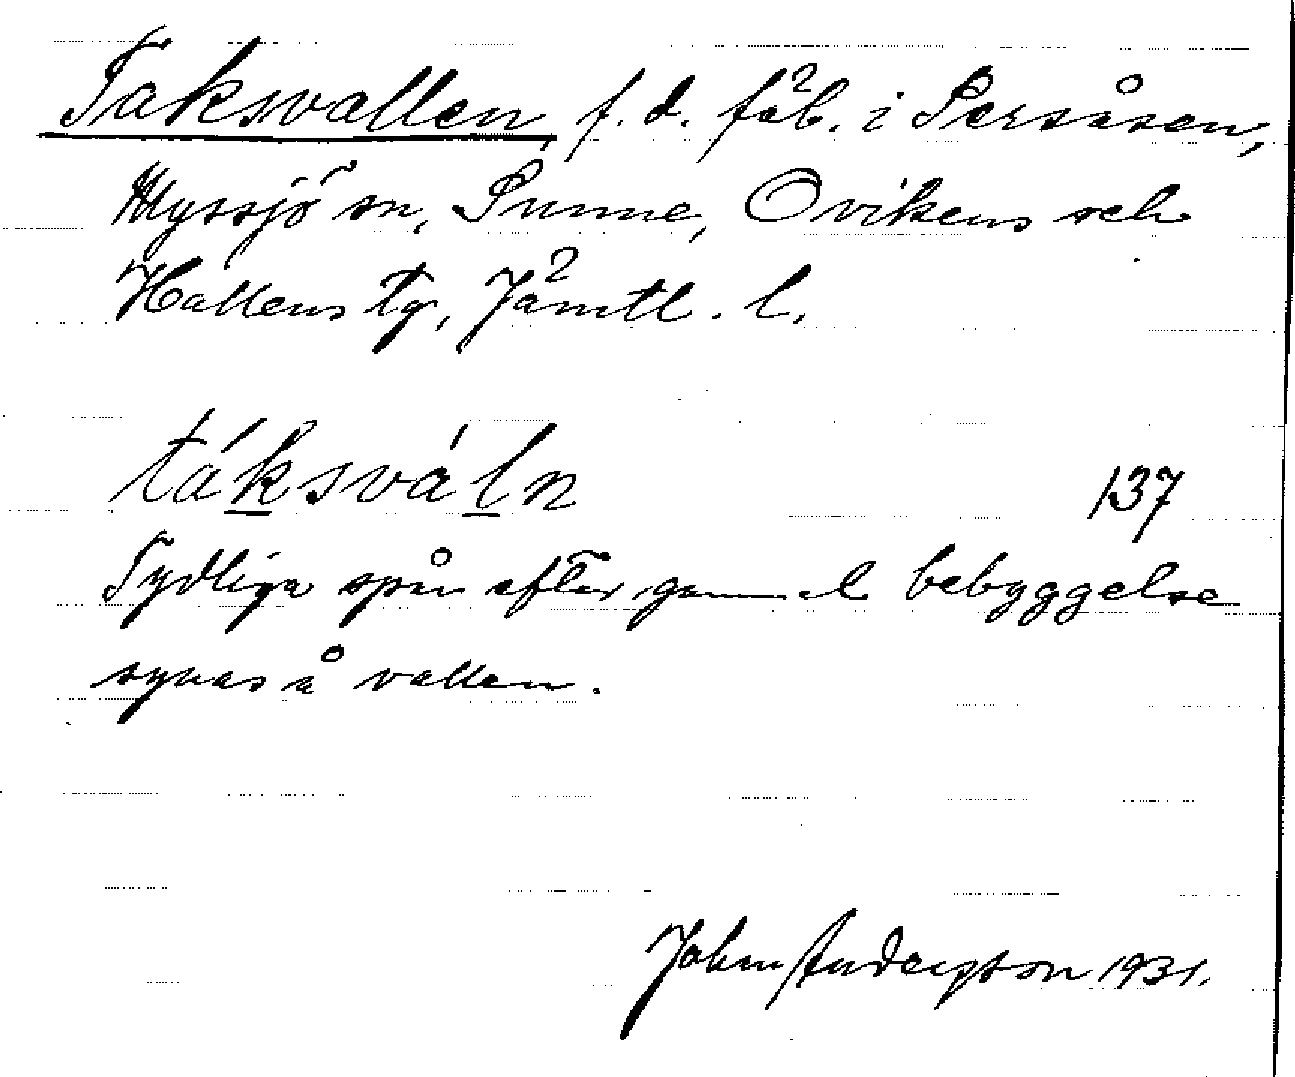 Taksvallen, f. d. fäb. i Persåsen,
Myssjö sn, Sunne, Ovikens och
Hallens tg, Jämtl. l.
táksváln
137
Tydliga spår efter gammal bebyggelse
synas å vallen.
John Anderzson 1931.